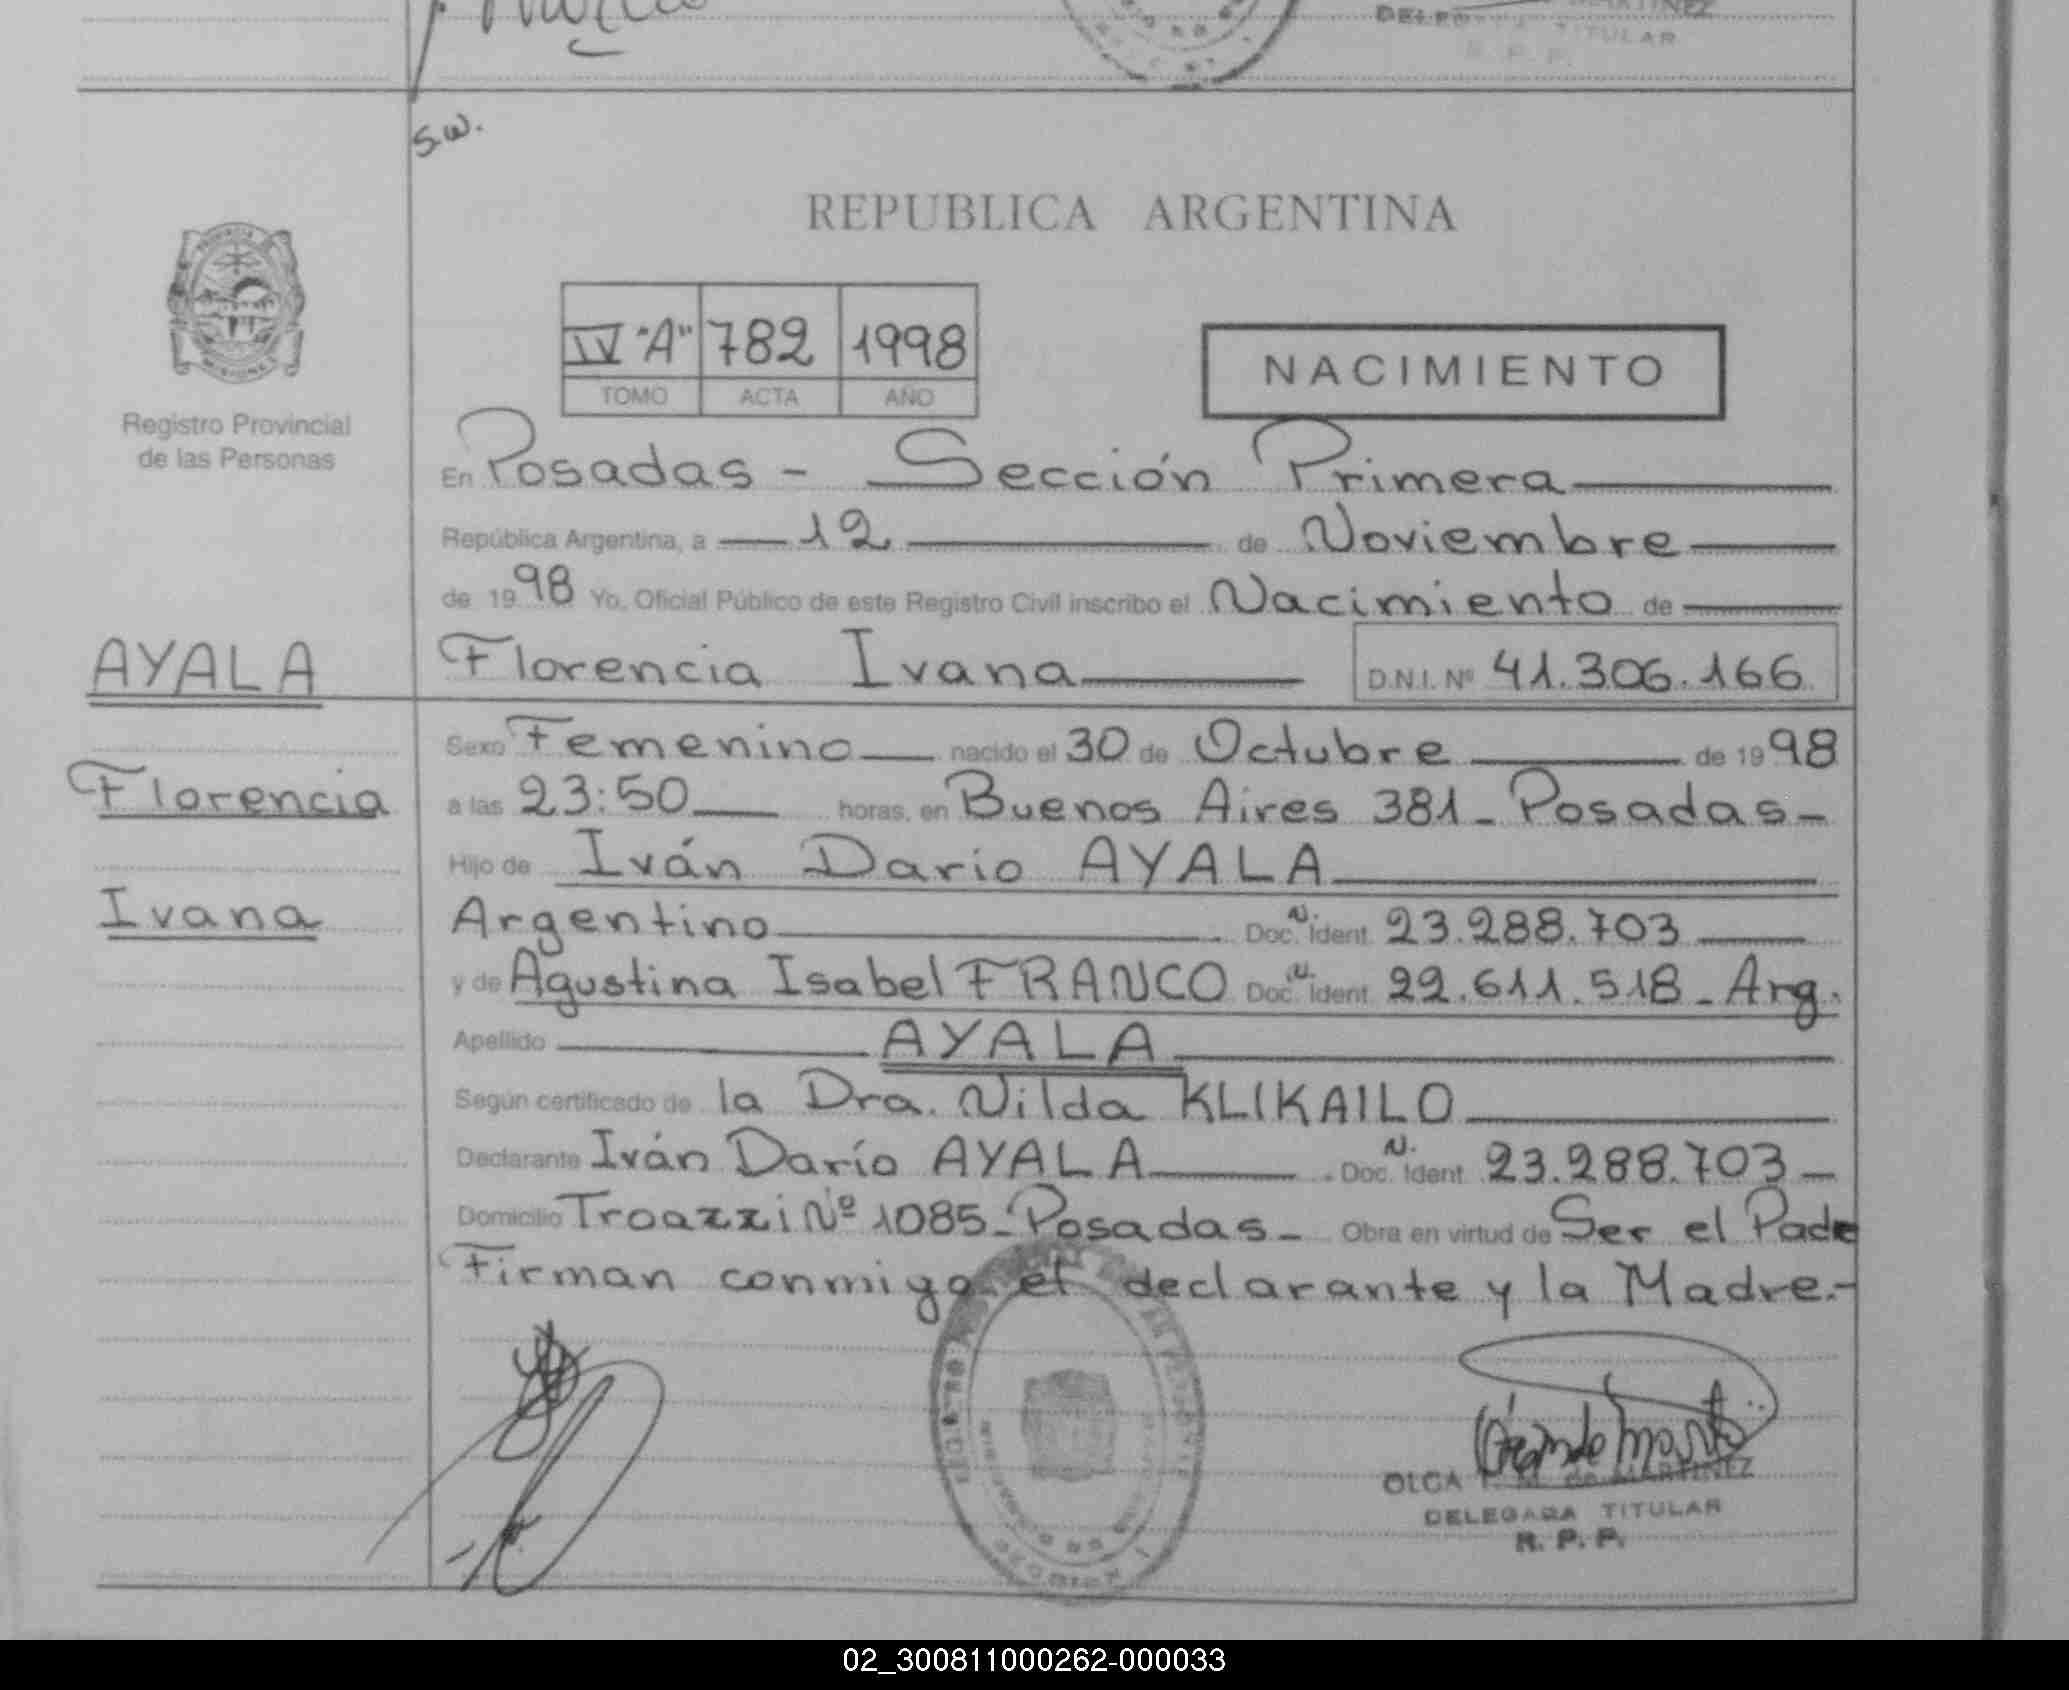 DELEG TITULAR
R. P. P.
S.W.
REPUBLICA ARGENTINA
PROVINCIA
MISIONES
IV "A" 782 1998
TOMO ACTA AÑO
NACIMIENTO
Registro Provincial
de las Personas
En Posadas - Sección Primera
República Argentina, a 12 de Noviembre
de 19 98 Yo, Oficial Público de este Registro Civil inscribo el Nacimiento de
AYALA
Florencia Ivana D.N.I. Nº 41.306.166
Sexo Femenino nacido el 30 de Octubre de 19 98
Florencia
a las 23:50 horas, en Buenos Aires 381 - Posadas -
Hijo de Iván Dario AYALA
Ivana
Argentino Doc. N. Ident. 23.288.703
y de Agustina Isabel FRANCO Doc. N. Ident. 22.611.518 - Arg.
Apellido AYALA
Según certificado de la Dra. Nilda KLIKAILO
Declarante Iván Darío AYALA Doc. N. Ident. 23.288.703 -
Domicilio Troazzi Nº 1085 - Posadas - Obra en virtud de Ser el Padre
Firman conmigo el declarante y la Madre.-
OLGA de MARTINEZ
DELEGADA TITULAR
R. P. P.
02_300811000262-000033